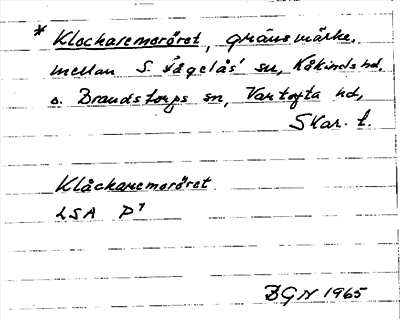 * Klockaremoröret, gränsmärke,
mellan S. Fågelås' sn, Kåkinds hd.
o. Brandstorps sn, Vartofta hd,
Skar. l.
Klåckaremoröret
LSA P¹
BGN 1965